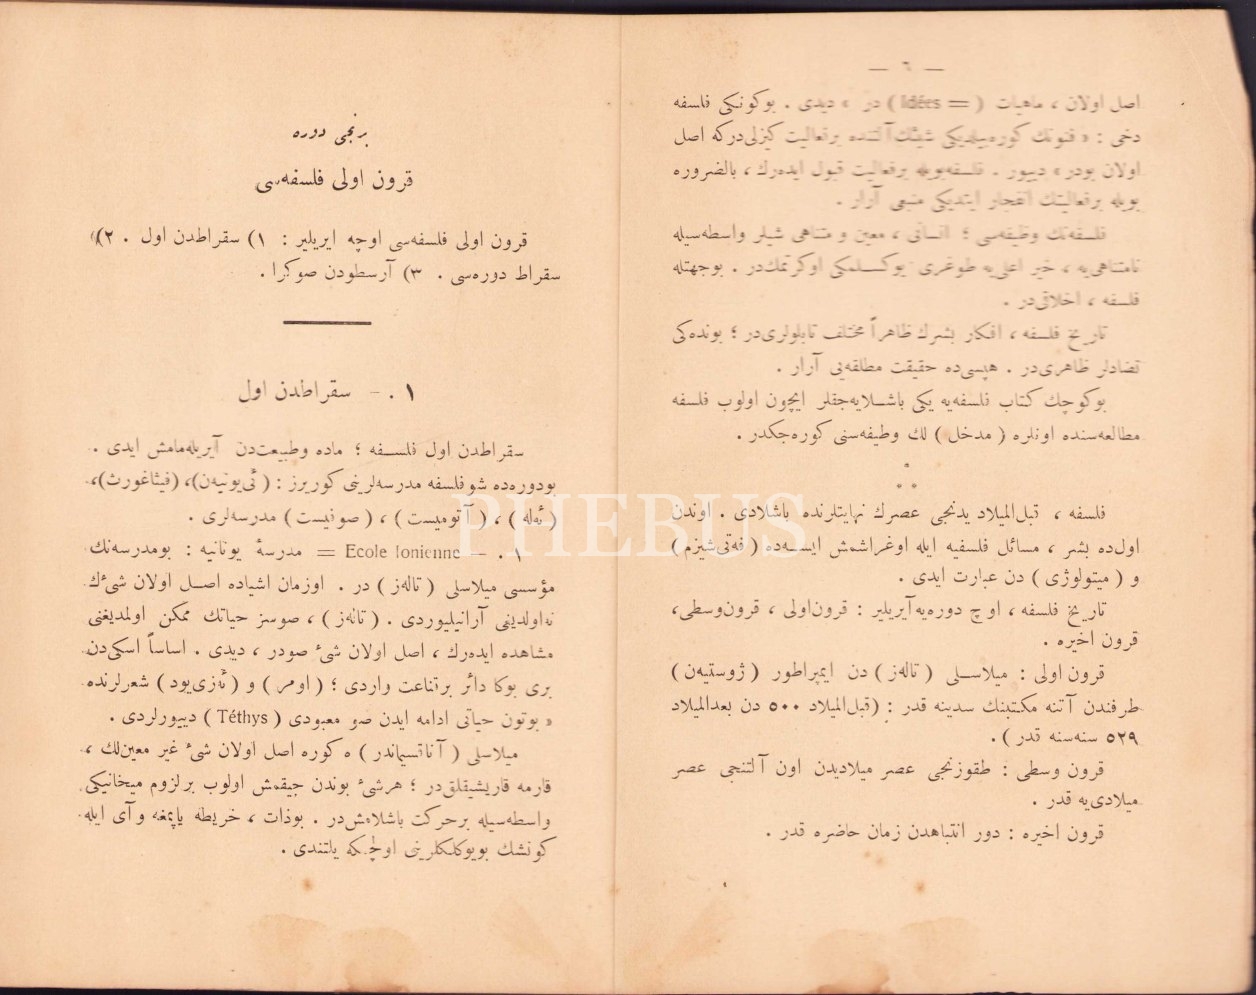 — ٦ —
اصل اولان ، ماهيات ( = Idées ) در » ديدى . بوكونكى فلسفه
دخى : « فنونك كوره‌ميلديكى شيئك آلتنده برفعاليت كيزلى‌دركه اصل
اولان بودر» دييور . فلسفه‌بويله برفعاليت قبول ايده‌رك ، بالضروره
بويله برفعاليتك انفجار ايتديكى منبعى آرار .
فلسفه‌نك وظيفه‌سى ؛ انسانى ، معين و متناهى شيلر واسطه‌سيله
نامتناهى‌يه ، خير اعلى‌يه طوغرى يوكسلمكى اوكرتمك‌در . بوجهتله
فلسفه ، اخلاقى‌در .
تاريخ فلسفه ، افكار بشرك ظاهراً مختلف تابلولرى‌در ؛ بونده‌كى
تضادلر ظاهرى‌در . هپسى‌ده حقيقت مطلقه‌يى آرار .
بوكوچك كتاب فلسفه‌يه يكى باشلايه‌جقلر ايچون اولوب فلسفه
مطالعه‌سنده اونلره ( مدخل ) لك وظيفه‌سنى كوره‌جكدر .
فلسفه ، قبل‌الميلاد يدنجى عصرك نهايتلرنده باشلادى . اوندن
اول‌ده بشر ، مسائل فلسفيه ايله اوغراشمش ايسه‌ده ( فه‌تى‌شيزم )
و ( ميتولوژى ) دن عبارت ايدى .
تاريخ فلسفه ، اوچ دوره‌يه‌آيريلير : قرون‌اولى ، قرون‌وسطى،
قرون اخيره .
قرون اولى : ميلاسلى ( تاله‌ز ) دن ايمپراطور ( ژوستيه‌ن )
طرفندن آتنه مكتبنك سدينه قدر : (قبل‌الميلاد ٥٠٠ دن بعدالميلاد
٥٢٩ سنه‌سنه قدر ) .
قرون وسطى : طقوزنجى عصر ميلاديدن اون آلتنجى عصر
ميلادى‌يه قدر .
قرون اخيره : دور انتباهدن زمان حاضره قدر .
برنجى دوره
قرون اولى فلسفه‌سى
قرون اولى فلسفه‌سى اوچه ايريلير : ١) سقراطدن اول . ٢)
سقراط دوره‌سى . ٣) آرسطودن صوكرا .
١ . – سقراطدن اول
سقراطدن اول فلسفه ؛ ماده وطبيعت‌دن آيريله‌مامش ايدى .
بودوره‌ده شوفلسفه مدرسه‌لرينى كوريرز : ( ئى‌يونيه‌ن )، (فيثاغورث)،
( ئه‌له ) ، ( آتوميست ) ، ( صوفيست ) مدرسه‌لرى .
١ . – Ecole Ionienne = مدرسهٔ يونانيه : بومدرسه‌نك
مؤسسى ميلاسلى ( تاله‌ز ) در . اوزمان اشياده اصل اولان شىءك
نه‌اولديغى آرانيليوردى . ( تاله‌ز ) ، صوسز حياتك ممكن اولمديغنى
مشاهده ايده‌رك ، اصل اولان شىء صودر ، ديدى . اساساً اسكى‌دن
برى بوكا دائر برقناعت واردى ؛ ( اومر ) و ( ئه‌زى‌يود ) شعرلرنده
« بوتون حياتى ادامه ايدن صو معبودى ( Téthys ) دييورلردى .
ميلاسلى ( آناقسيماندر ) ه كوره اصل اولان شىء غير معين‌لك ،
قارمه قاريشيقلق‌در ؛ هرشىء بوندن چيقمش اولوب برلزوم ميخانيكى
واسطه‌سيله برحركت باشلامش‌در . بوذات ، خريطه ياپمغه و آى ايله
كونشك بويوكلكلرينى اولچمكه يلتندى .
PHEBUS